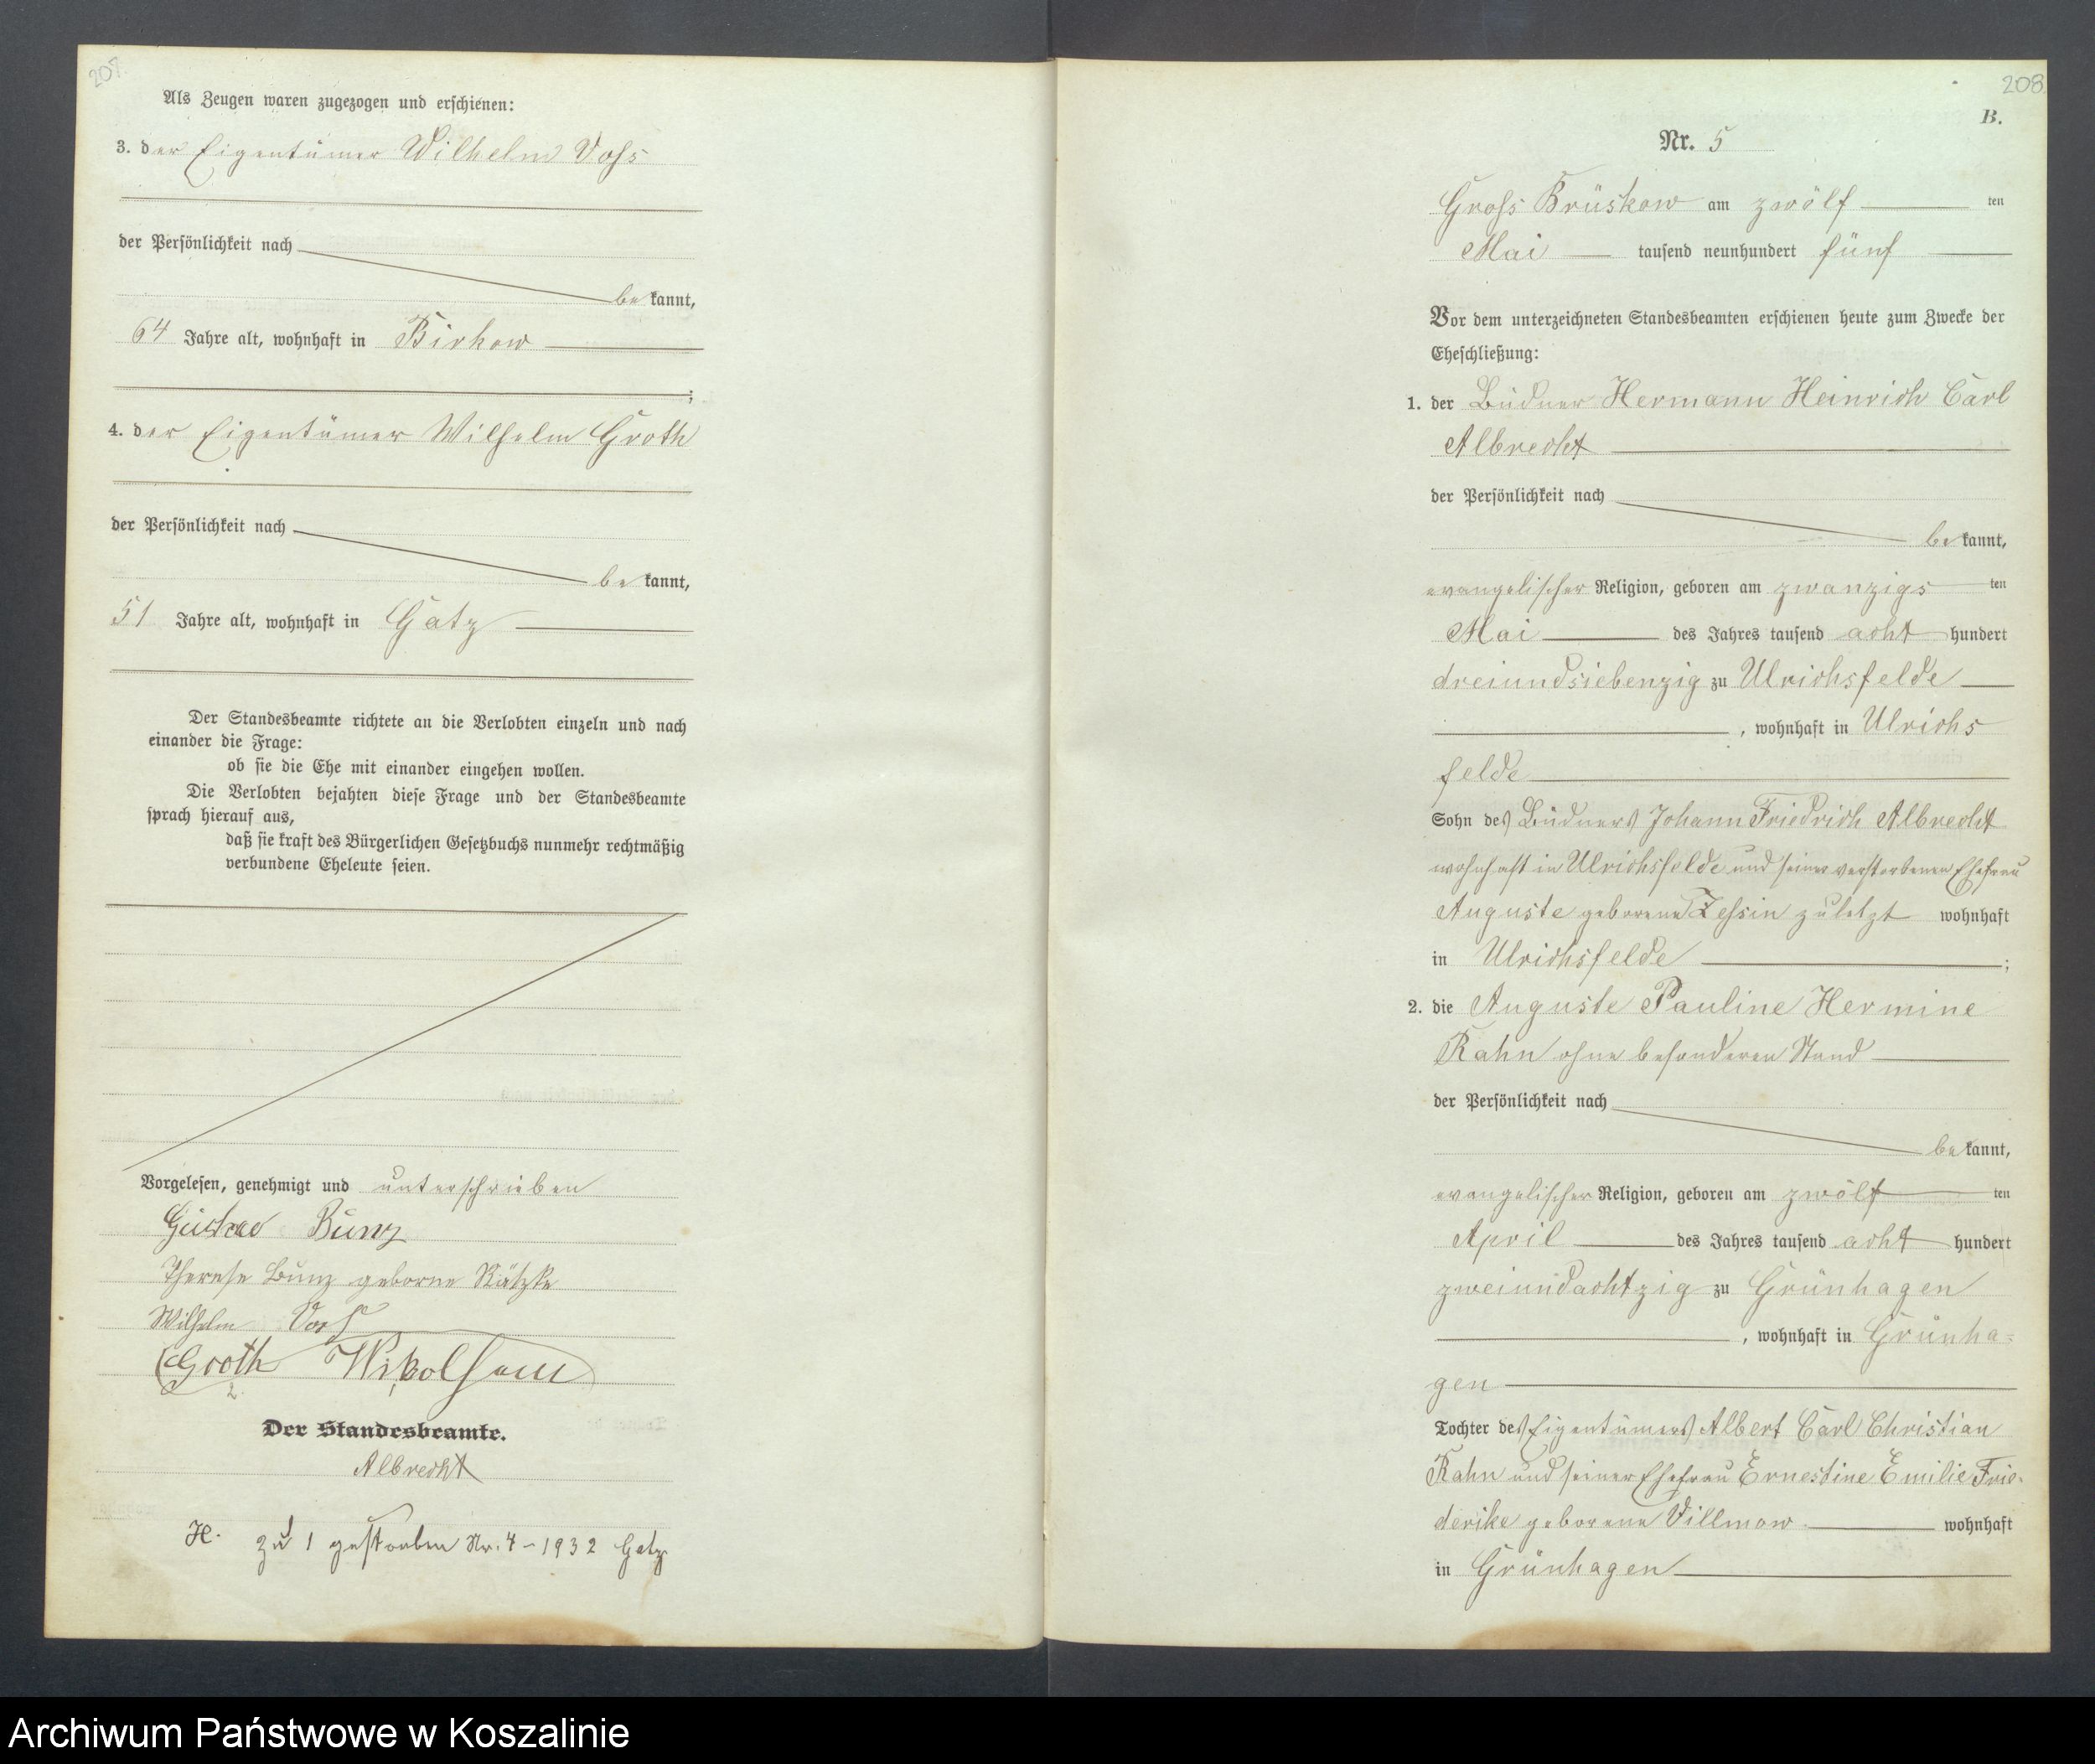 207.
Als Zeugen waren zugezogen und erschienen:
3. der Eigentümer Wilhelm Voss
der Persönlichkeit nach
be kannt,
64 Jahre alt, wohnhaft in Birkow
;
4. der Eigentümer Wilhelm Groth
der Persönlichkeit nach
be kannt,
51 Jahre alt, wohnhaft in Gatz
Der Standesbeamte richtete an die Verlobten einzeln und nach
einander die Frage:
ob sie die Ehe mit einander eingehen wollen.
Die Verlobten bejahten diese Frage und der Standesbeamte
sprach hierauf aus,
daß sie kraft des Bürgerlichen Gesetzbuchs nunmehr rechtmäßig
verbundene Eheleute seien.
Vorgelesen, genehmigt und unterschrieben
Gustav Bunz
Therese Bunz geborne Rätzke
Wilhelm Voss
Groth
Der Standesbeamte.
Albrecht
H. zu 1 gestorben Nr. 4 - 1932 Gatz.
208.
B.
Nr. 5
Gross Brüskow am zwölf ten
Mai tausend neunhundert fünf
Vor dem unterzeichneten Standesbeamten erschienen heute zum Zwecke der
Eheschließung:
1. der Büdner Hermann Heinrich Carl
Albrecht
der Persönlichkeit nach
be kannt,
evangelischer Religion, geboren am zwanzigs ten
Mai des Jahres tausend acht hundert
dreiundsiebenzig zu Ulrichsfelde
, wohnhaft in Ulrichs
felde
Sohn des Büdners Johann Friedrich Albrecht
wohnhaft in Ulrichsfelde und seiner verstorbenen Ehefrau
Auguste geborene Zessin zuletzt wohnhaft
in Ulrichsfelde ;
2. die Auguste Pauline Hermine
Rahn ohne besonderen Stand
der Persönlichkeit nach
be kannt,
evangelischer Religion, geboren am zwölf ten
April des Jahres tausend acht hundert
zweiundachtzig zu Grünhagen
, wohnhaft in Grünha=
gen
Tochter des Eigentümers Albert Carl Christian
Rahn und seiner Ehefrau Ernestine Emilie Frie-
derike geborene Villmow wohnhaft
in Grünhagen
Archiwum Państwowe w Koszalinie